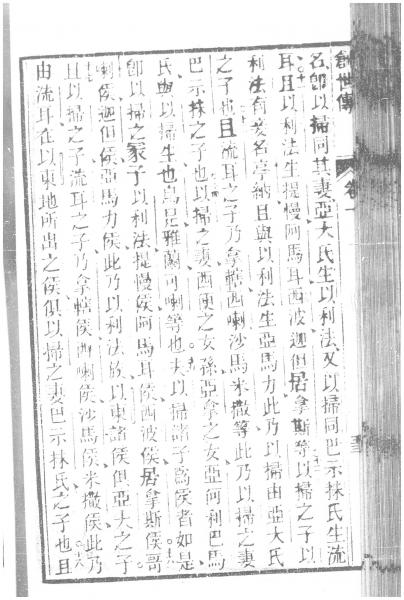 創世傳 卷一
名卽以掃同其妻亞大氏生以利法又以掃同巴示抹氏生流
耳且以利法生提慢阿馬耳西波迦但居拿斯等以掃之子以
利法有妾名亭納且與以利法生亞馬力此乃以掃由亞大氏
之子也且流耳之子乃拿轄西喇沙馬米撒等此乃以掃之妻
巴示抹之子也以掃之妻西便之女孫亞拿之女亞何利巴馬
氏與以掃生也烏是雅蘭可喇等也夫以掃諸子爲侯者如是
卽以掃之冢子以利法提慢侯阿馬耳侯西波侯居拿斯侯哥
喇侯迦但侯亞馬力侯此乃以利法於以東諸侯但亞大之子
且以掃之子流耳之子乃拿轄侯西喇侯沙馬侯米撒侯此乃
由流耳在以東地所出之侯俱以掃之妻巴示抹氏之子也且